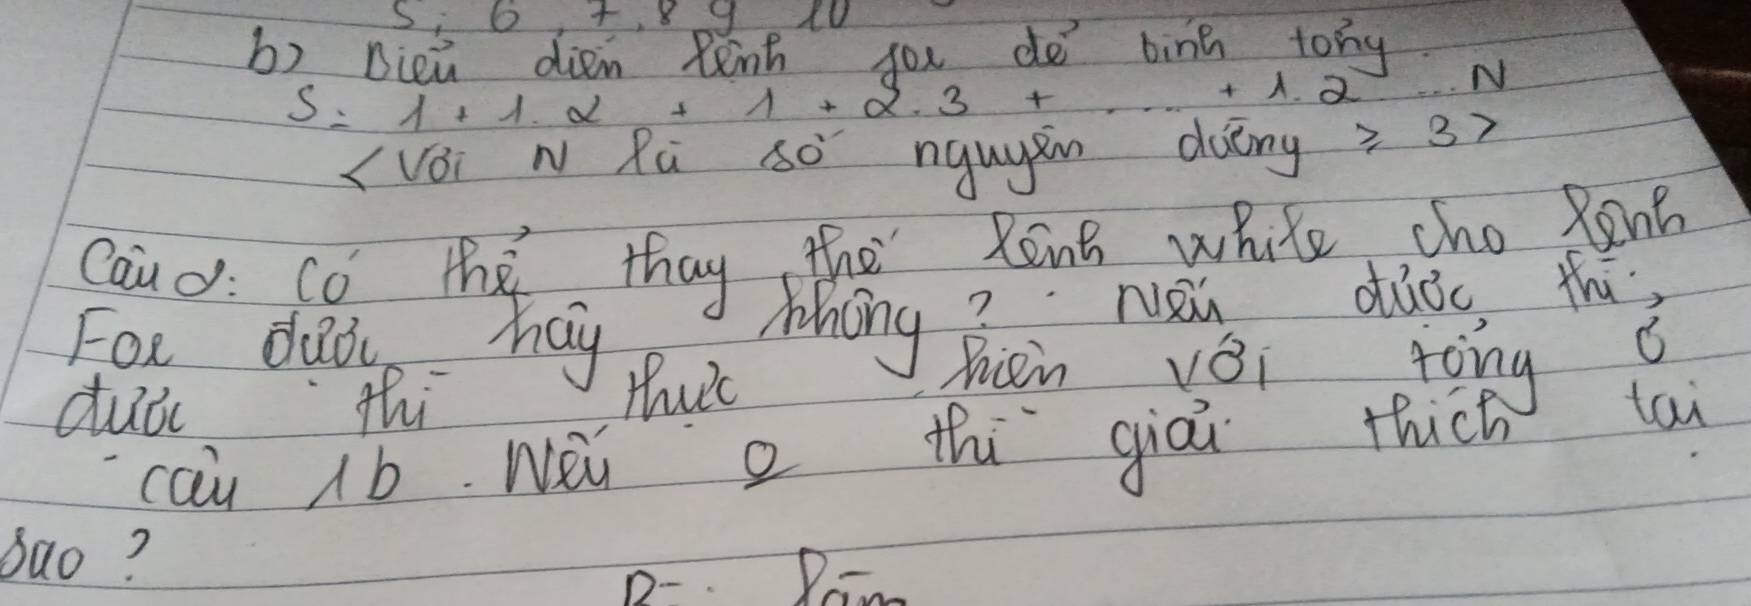 5, 6, 7, 8 9 10
b) Biểu diễn lệnh for để tính tổng
S = 1 + 1.2 + 1 + 2.3 + .... + 1.2 ... N
<Với N là số nguyên dương ≥ 3>
Câu 2: Có thể thay thế lệnh while cho lệnh
For được hay không? Nếu được thì
được thì thực hiện với tổng ở
câu 1b. Nếu o thì giải thích tại
sao?